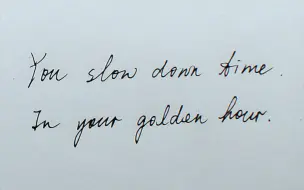 You slow down time.
In your golden hour.